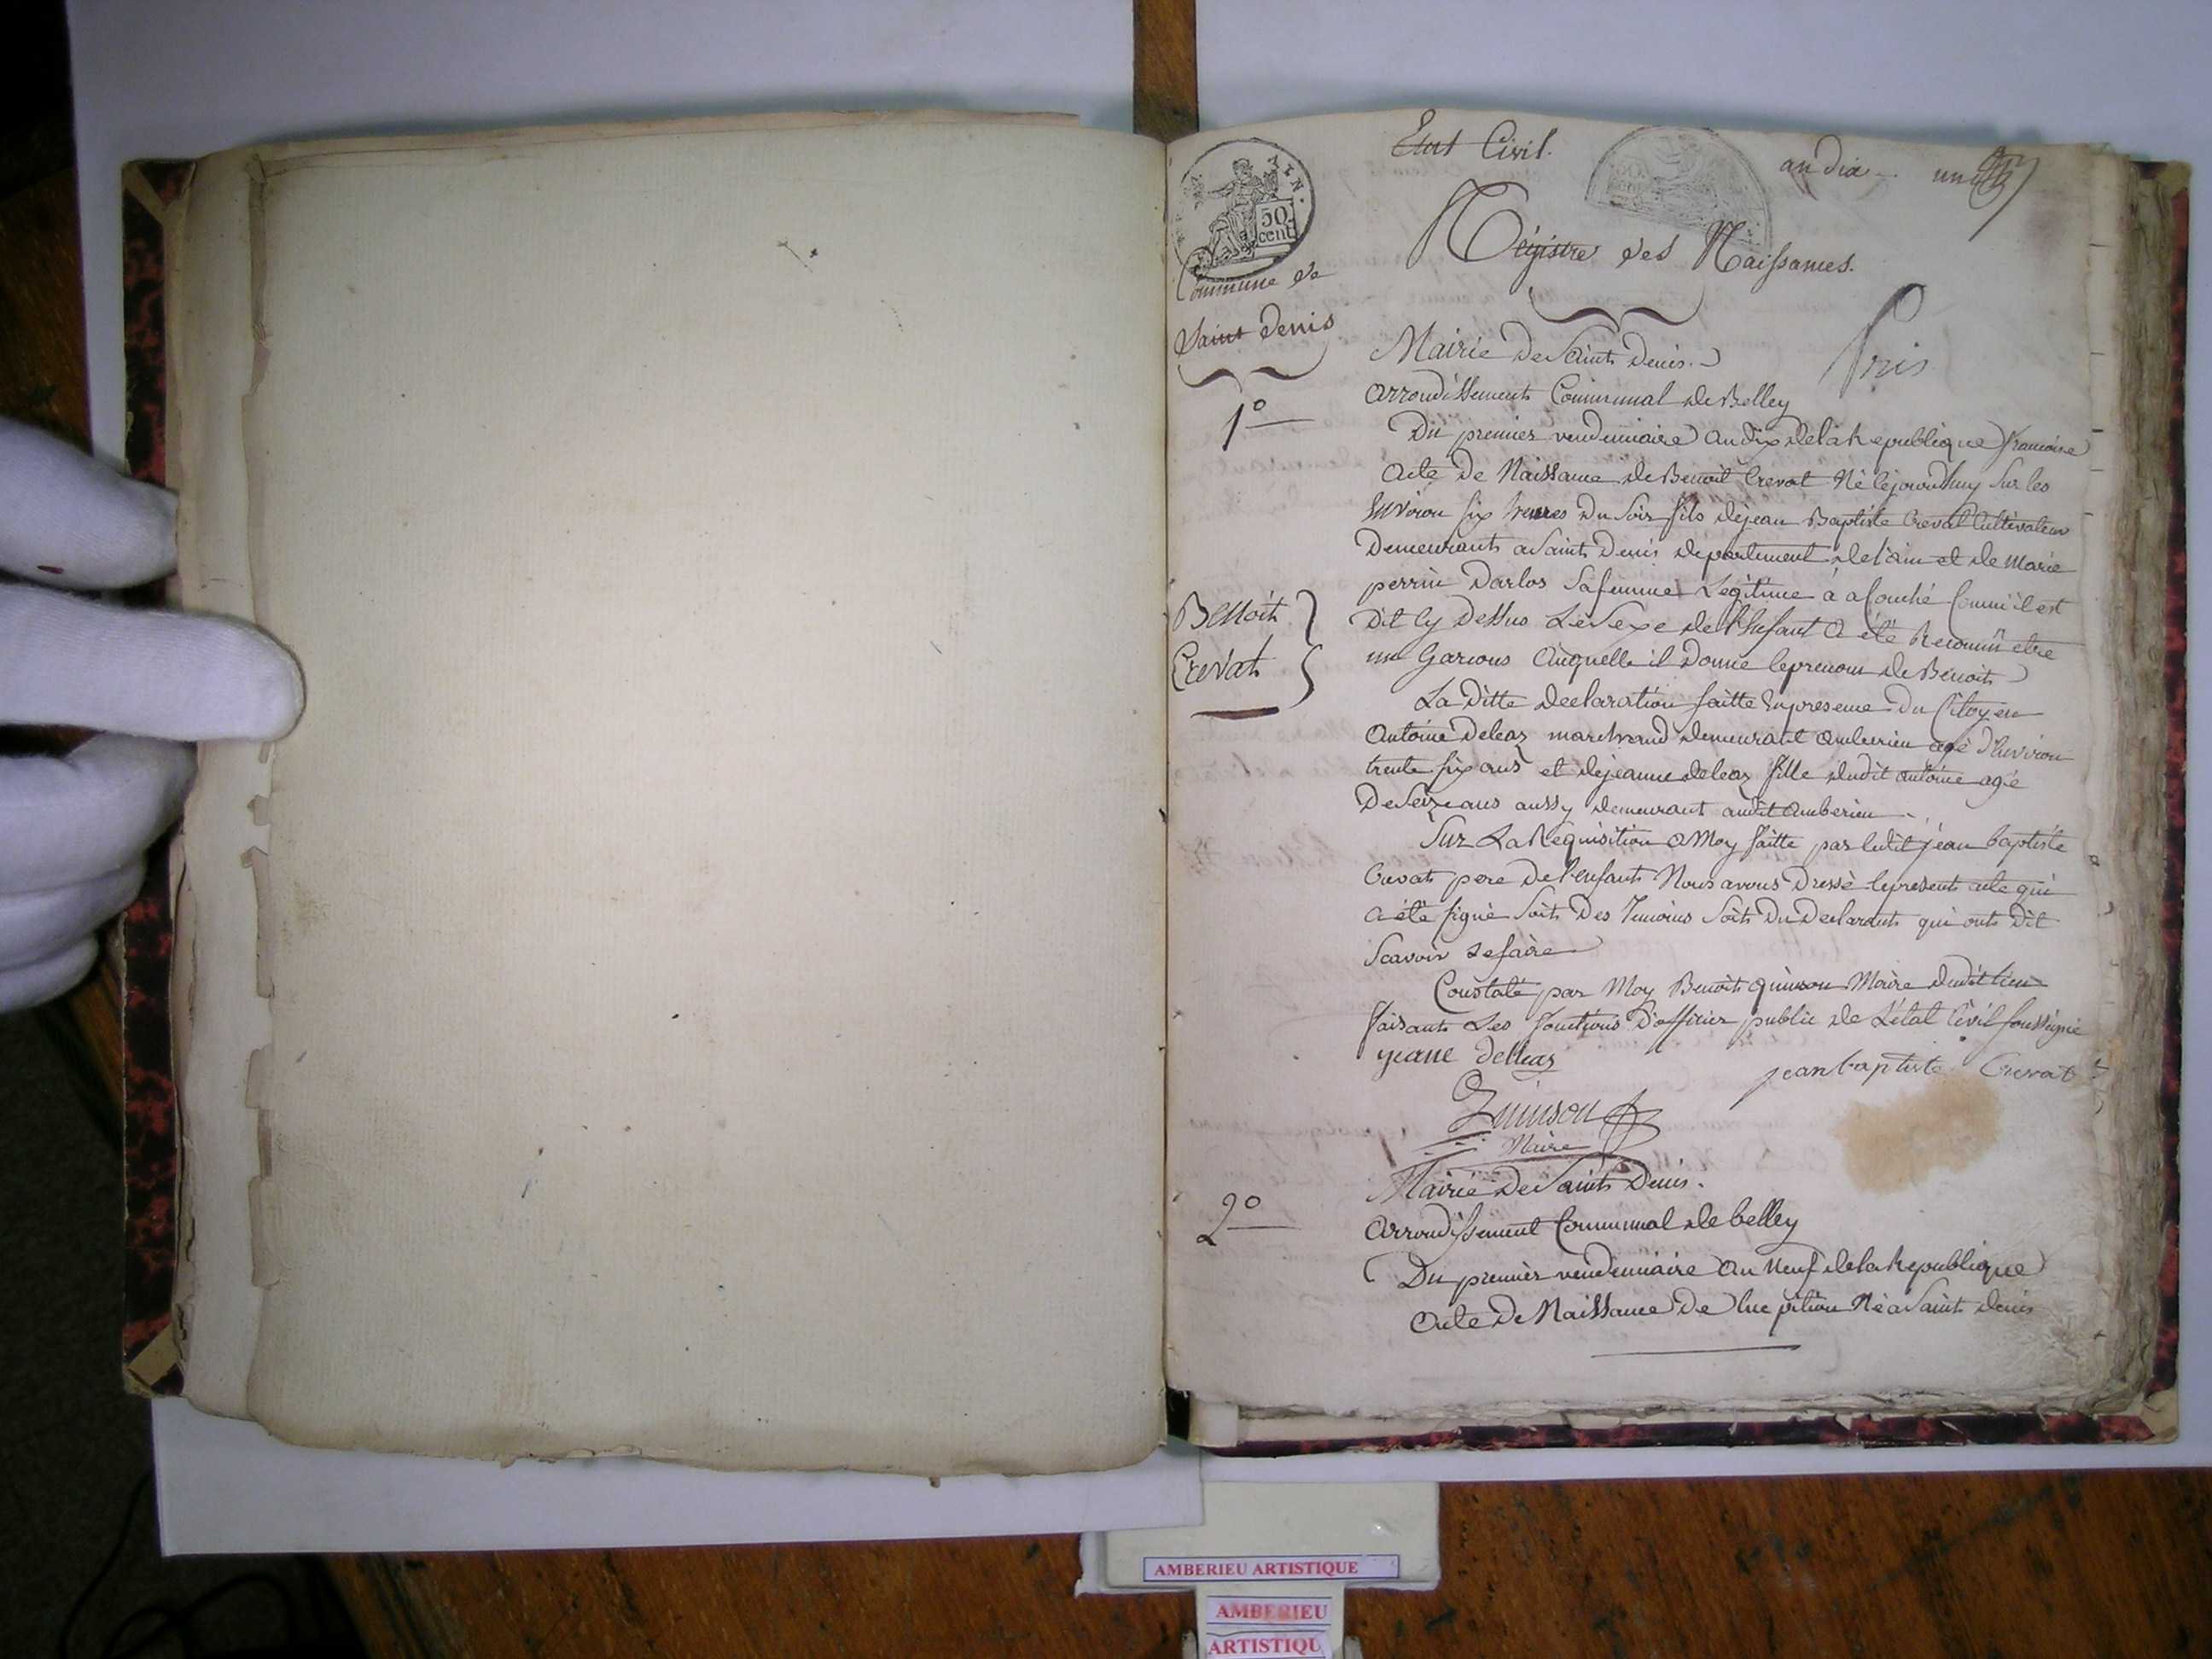 Etat Civil.
an dix
50
cent
Registre des Naissances.
Commune de
Saint Denis
Mairie de Saint Denis.
arrondissement Communal de Belley
1º
Du premier vendemiaire an dix de la Republique francoise
acte de Naissance de Benoit Crevat Né lejourdhuy sur les
Environ six heures du soir fils dejean Baptiste Crevat Cultivateur
Demeurant a Saint Denis departement de l'ain et de Marie
perrin Darlos sa femme Légitime à acouché comme il est
Benoit
Crevat
Dit Cy Dessus Le Sexe de l'Enfant a été Reconnû etre
un Garcons Auquelle il Donne le prenom de Benoit
La Ditte declaration faitte En presence du Citoyen
Antoine deleaz marchand demeurant amberieu agé d'Environ
trente six ans et dejeanne deleaz fille dudit antoine agé
De Seize ans aussy demeurant audit amberieu
Sur La Requisition a Moy faitte par ledit jean baptiste
Crevat pere de l'enfant Nous avons Dressé le present acte qui
a été signé soit Des Temoins soit Du Declarant qui ont Dit
Scavoir Le faire
Constaté par Moy Benoit quinson Maire dudit lieu
faisant Les fonctions D'officier public de L'état Civil soussigné
jeane delleaz
jean baptiste Crevat
Quinson
Maire
Mairie de Saint Denis.
2º
arrondissement Communal de belley
Du premier vendemiaire an Neuf de la Republique
acte De Naissance De luc pition Né a Saint denis
AMBERIEU ARTISTIQUE
AMBERIEU
ARTISTIQU